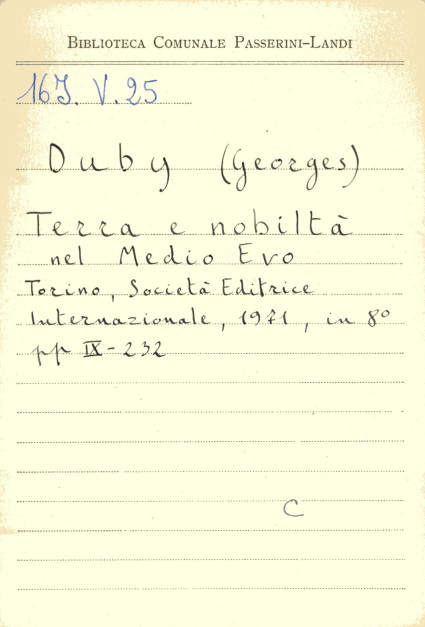 BIBLIOTECA COMUNALE PASSERINI-LANDI
16J. V. 25
Duby (Georges)
Terra e nobiltà
nel Medio Evo
Torino, Società Editrice
Internazionale, 1971, in 8º
pp IX-232
C